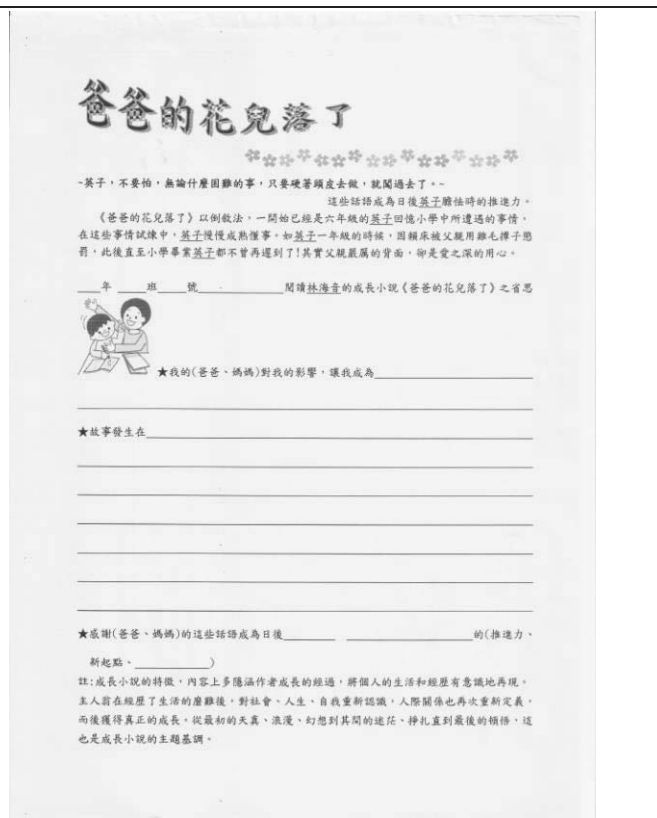 爸爸的花兒落了
~英子，不要怕，無論什麼困難的事，只要硬著頭皮去做，就闖過去了。~
這些話語成為日後英子膽怯時的推進力。
《爸爸的花兒落了》以倒敘法，一開始已經是六年級的英子回憶小學中所遭遇的事情，
在這些事情試煉中，英子慢慢成熟懂事。如英子一年級的時候，因賴床被父親用雞毛撢子懲
罰，此後直至小學畢業英子都不曾再遲到了!其實父親嚴厲的背面，卻是愛之深的用心。
____年 ____班 ____號____________閱讀林海音的成長小說《爸爸的花兒落了》之省思
★我的(爸爸、媽媽)對我的影響，讓我成為____________________
★故事發生在____________________
★感謝(爸爸、媽媽)的這些話語成為日後________ ____________________的(推進力、
新起點、__________)
註:成長小說的特徵，內容上多隱涵作者成長的經過，將個人的生活和經歷有意識地再現。
主人翁在經歷了生活的磨難後，對社會、人生、自我重新認識，人際關係也再次重新定義，
而後獲得真正的成長。從最初的天真、浪漫、幻想到其間的迷茫、掙扎直到最後的頓悟，這
也是成長小說的主題基調。